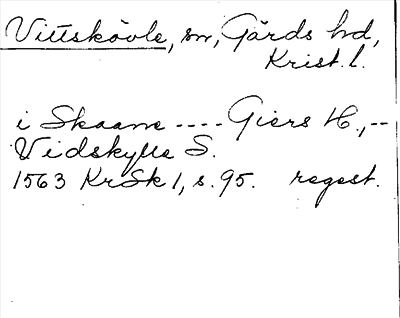 Vittskövle, sn, Gärds hd,
Krist. l.
i Skaane ---- Giers H., --
Vidskylle S.
1563 KrSk 1, s. 95. regest.